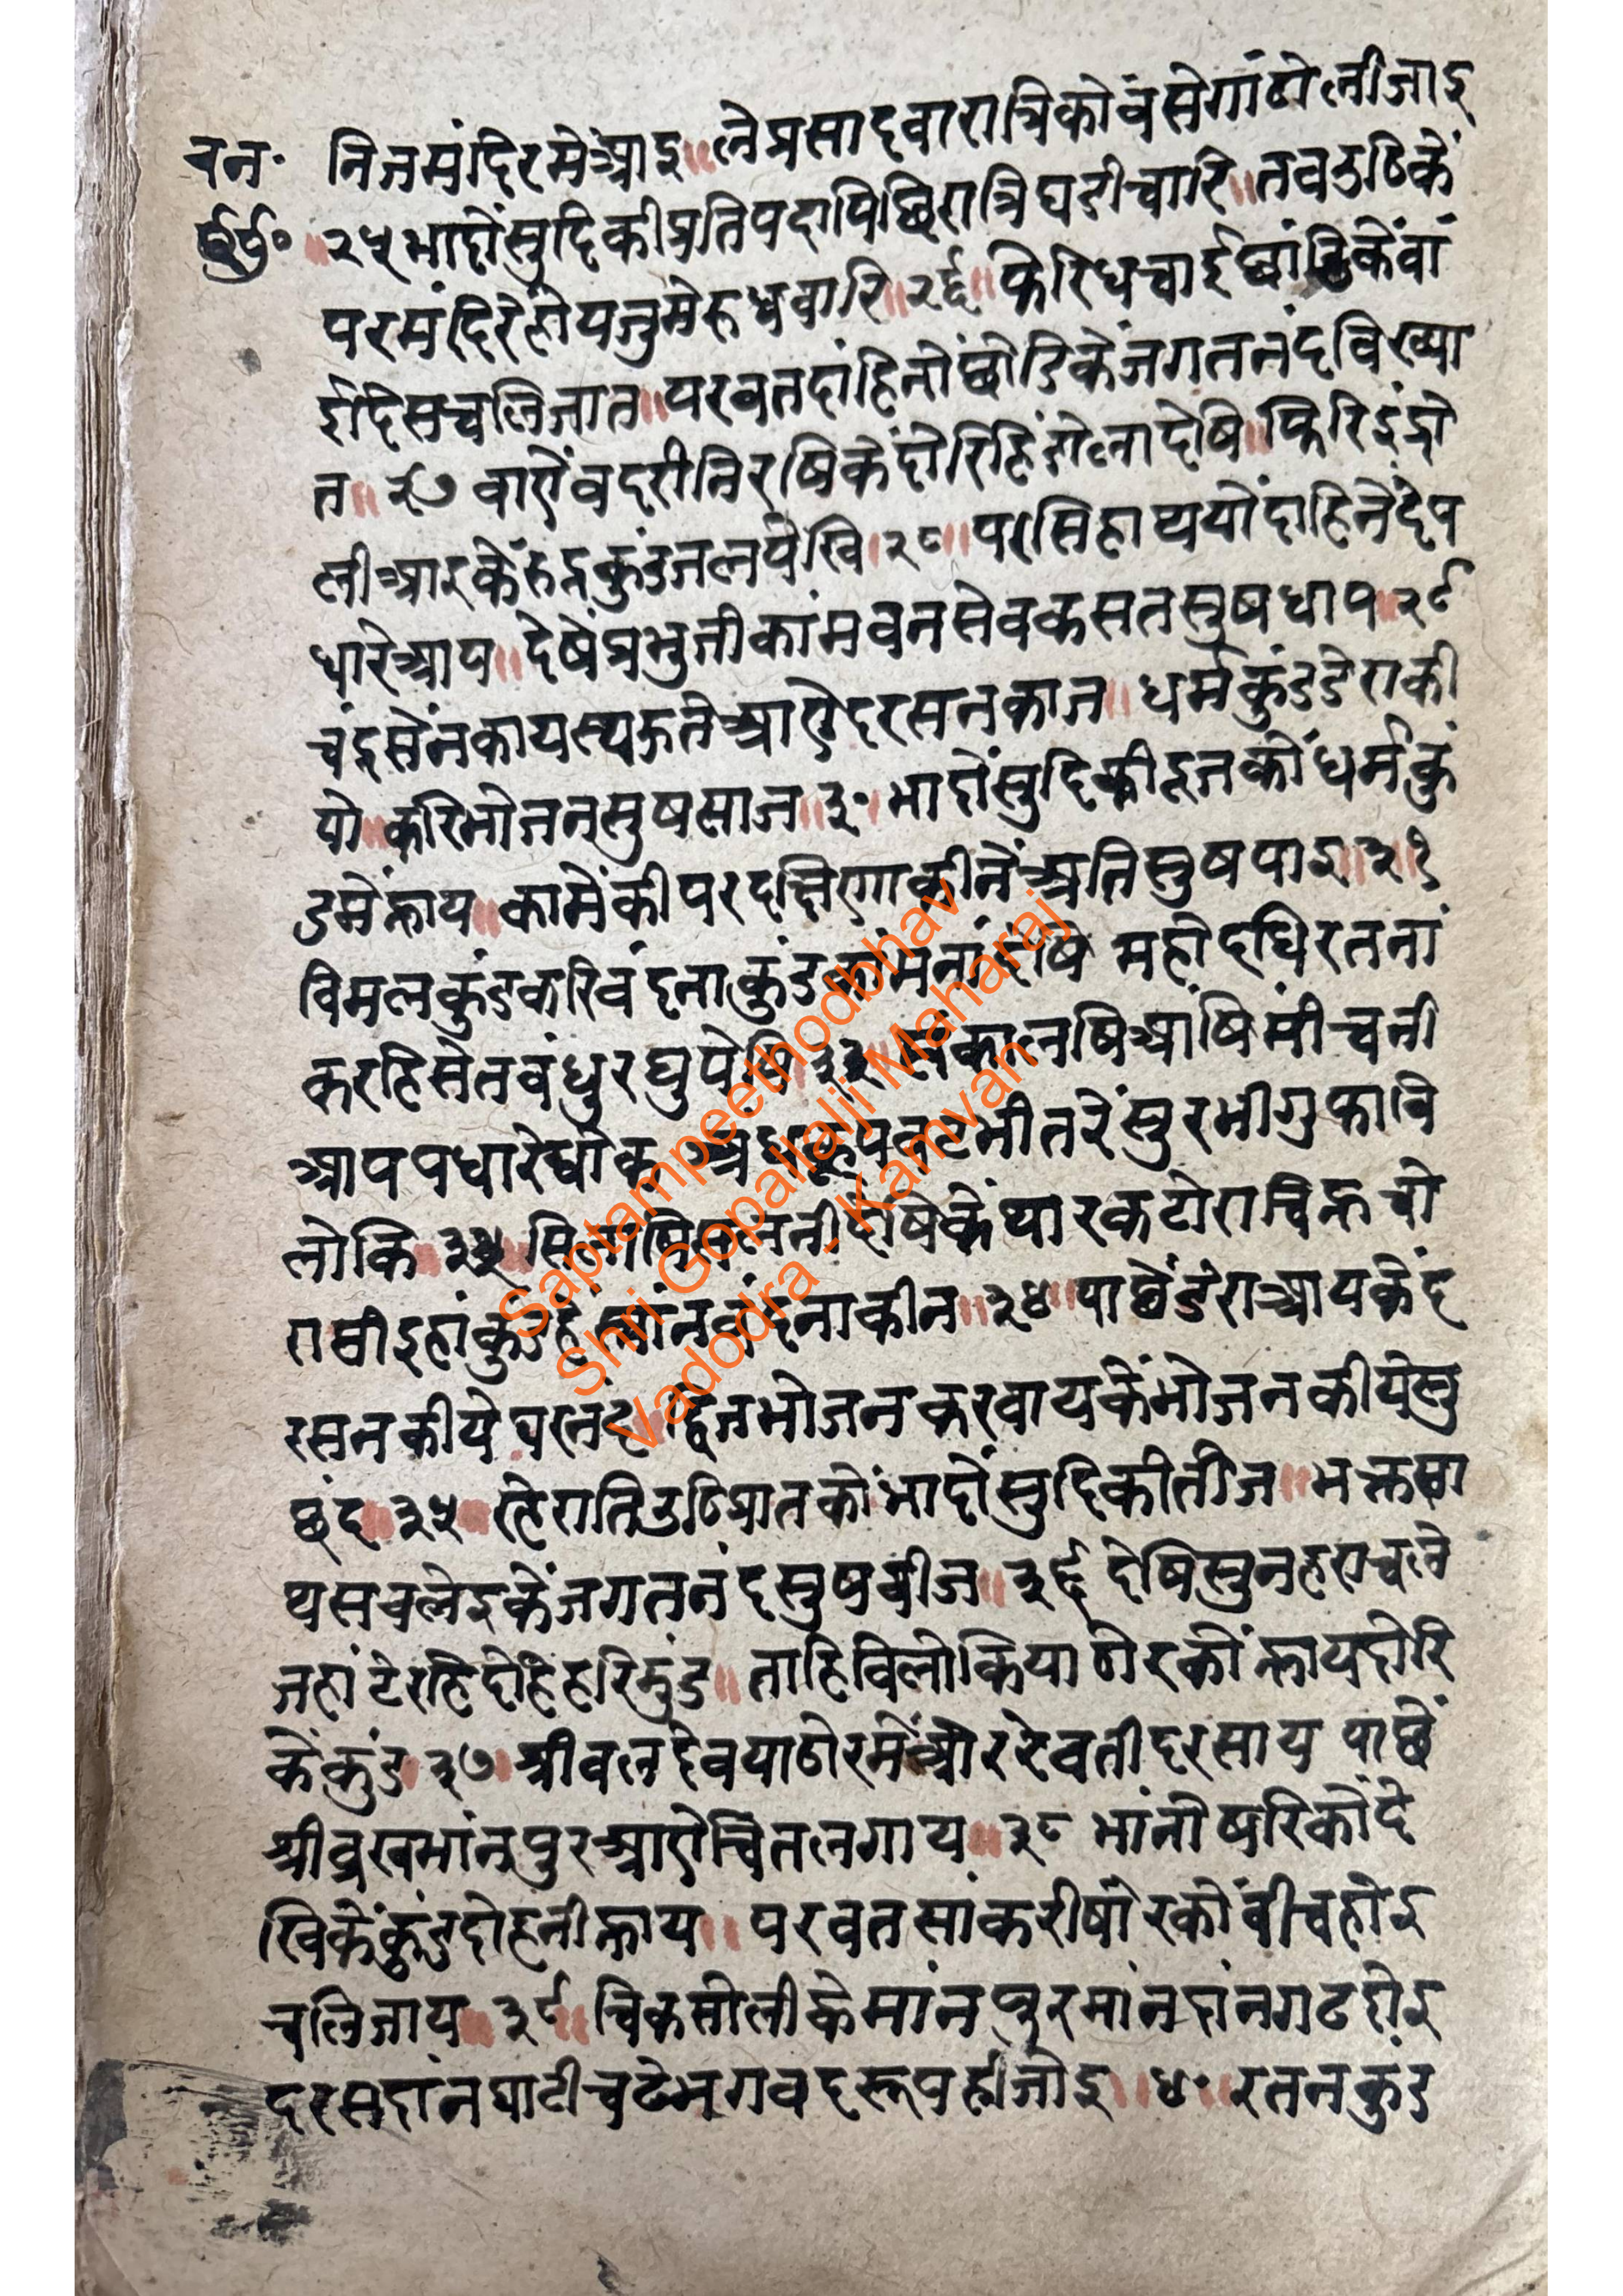 वन॰ निजमंदिरमेंआइ॥लेप्रसादवारात्रिकोंवसेगांठोलीजाइ
॥२५भादोंसुदिकीप्रतिपदापिछिरात्रिघटीच्यारि॥तवउठिकें
परमंदिरेहोयजुमेरुधवारि॥२६॥फिरिधचाईछांडिकेंवां
ईदिसचलिजात॥परवतदांहिनोंछोडिकेंजगतनंदविख्या
त॥२७वाऐंवदरीनिरषिकेंदोरिहिंडोलादेषि॥फिरिइंद्रो
लीआइकेंरुद्रकुंडजलपेखि॥२८॥परसिहाथयोंदाहिनेंदेप
धारेआप॥देषेंप्रभुजीकांमवनसेवकसतसुषथाप॥२९
चंद्रसेंनकायस्थकुतेआऐदरसनकाज॥धर्मकुंडडेराकी
यो॥करिभोजनसुषसाज॥३०॥भादोंसुदिकीदूजकोंधर्मकुं
डमेंन्हाय॥कामेंकीपरदक्षिणाकीनेंअतिसुषपाइ॥३१
विमलकुंडकरिवंदनाकुंडकांमनांदेषि महोदधिरतनां
करहिसेतवंधुरघुपेषि॥३२॥लंकालषिआंषिमीचनी
आपपधारेघोक
लोकि॥३३॥ थारकटोराचिन्हचो
रासीइहांकुंडहें वंदनाकीन॥३४॥पाछेंडेराआयकेंद
रसनकीये द्विजभोजनकरवायकेंभोजनकीयेसु
छंद॥३५॥रहेरातिउठिप्रातकोंभादोंसुदिकीतीज॥भक्तसा
थसवलेइकेंजगतनंदसुषवीज॥३६देषिसुनहराचले
जहांटेरहिदोहिहरिमुंड॥ताहिविलोकियाणेरकोंन्हायदोरि
केंकुंड॥३७॥श्रीवलदेवयाणेरमेंओररेवतीदरसाय पाछें
श्रीव्रखभांनपुरआऐचितलगाय॥३८ भांनोषरिकोंदे
खिकेंकुंडदोहनीन्हाय॥परवतसांकरीषोरकोंवीचहोइ
चलिजाय॥३९॥चिकसोलीकेमांनपुरमांनदांनगढदोइ
दरसदांनघाटीचढेभगवदरूपहीजोइ॥४०॥रतनकुंड
Saptampeethodbhav
Shri Gopallalji Maharaj
Vadodra - Kamvan